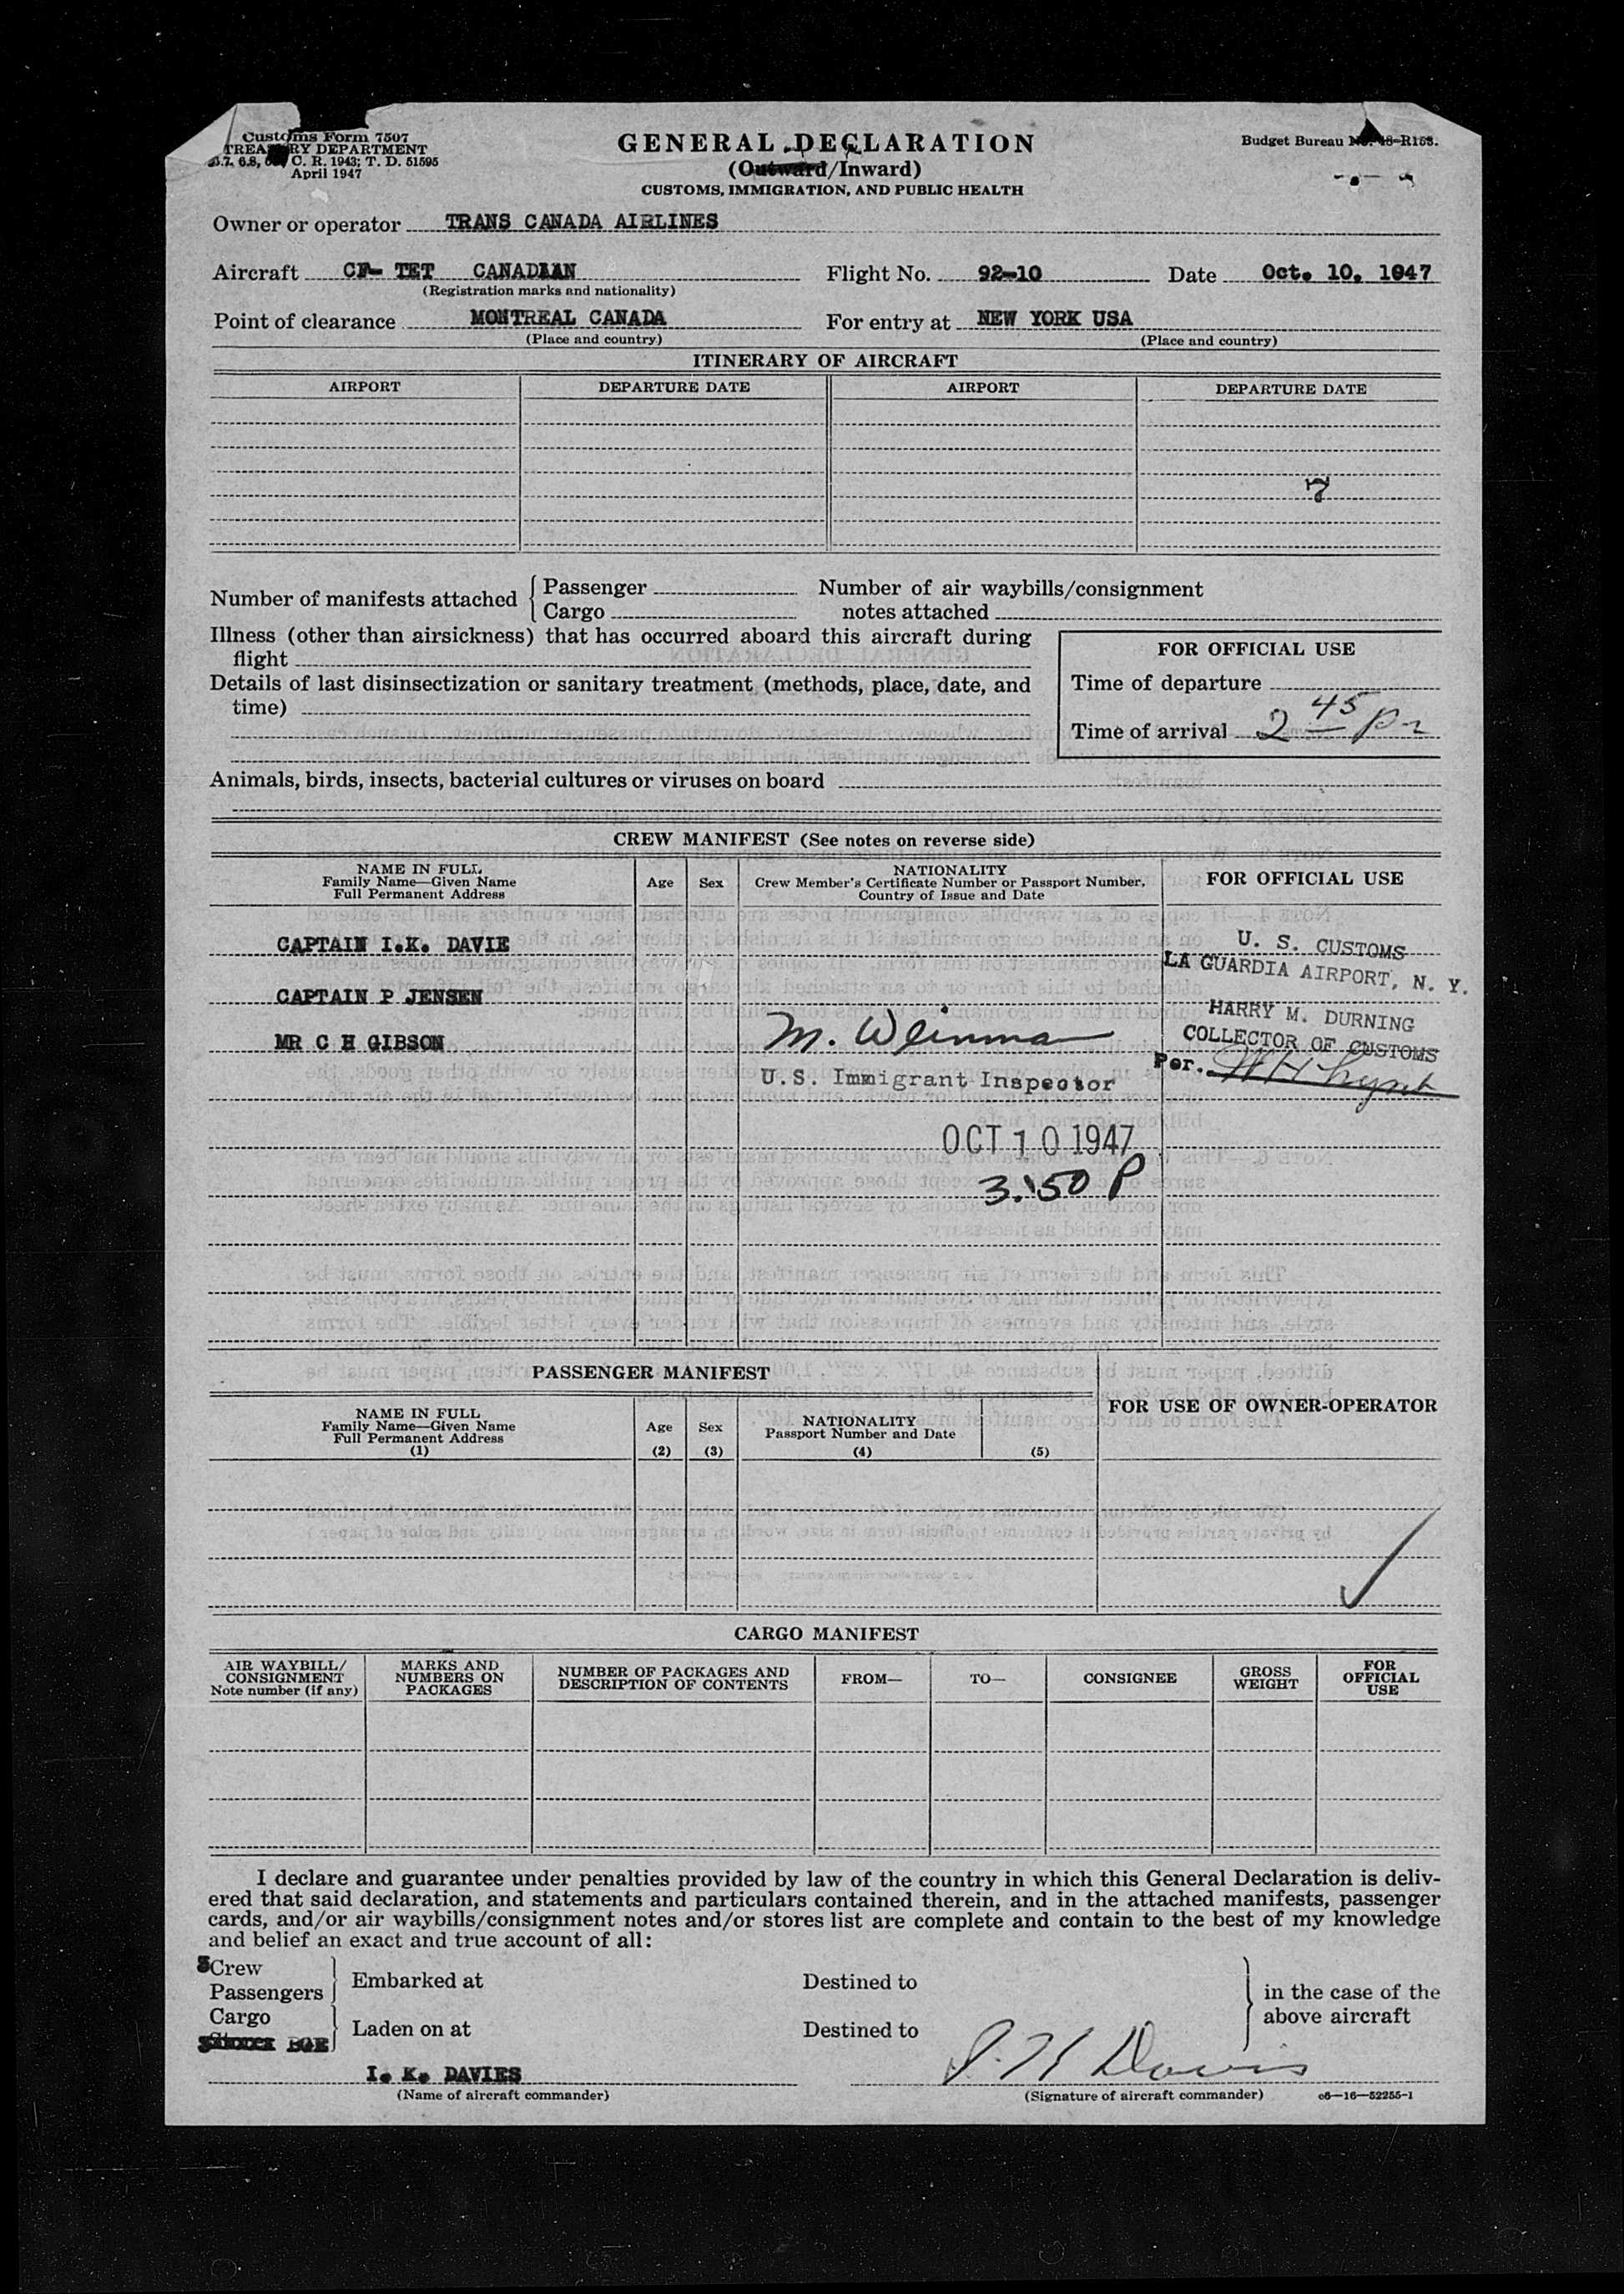 Customs Form 7507
TREASURY DEPARTMENT
C. R. 1943; T. D. 51595
April 1947
GENERAL DECLARATION
(Outward/Inward)
CUSTOMS, IMMIGRATION, AND PUBLIC HEALTH
Budget Bureau No. 48-R153.
Owner or operator TRANS CANADA AIRLINES
Aircraft CF- TET CANADIAN Flight No. 92-10 Date Oct. 10, 1947
(Registration marks and nationality)
Point of clearance MONTREAL CANADA For entry at NEW YORK USA
(Place and country) (Place and country)
ITINERARY OF AIRCRAFT
AIRPORT DEPARTURE DATE AIRPORT DEPARTURE DATE
Number of manifests attached { Passenger Number of air waybills/consignment
Cargo notes attached
Illness (other than airsickness) that has occurred aboard this aircraft during
flight
Details of last disinsectization or sanitary treatment (methods, place, date, and
time)
FOR OFFICIAL USE
Time of departure
Time of arrival 2 45 pm
Animals, birds, insects, bacterial cultures or viruses on board
CREW MANIFEST (See notes on reverse side)
NAME IN FULL
Family Name—Given Name
Full Permanent Address
Age Sex
NATIONALITY
Crew Member's Certificate Number or Passport Number,
Country of Issue and Date
FOR OFFICIAL USE
CAPTAIN I.K. DAVIE
CAPTAIN P JENSEN
MR C H GIBSON
U. S. CUSTOMS
LA GUARDIA AIRPORT, N. Y.
HARRY M. DURNING
COLLECTOR OF CUSTOMS
Per.
M. Weinman
U.S. Immigrant Inspector
OCT 10 1947
3:50 P
PASSENGER MANIFEST
NAME IN FULL
Family Name—Given Name
Full Permanent Address
(1)
Age
(2)
Sex
(3)
NATIONALITY
Passport Number and Date
(4) (5)
FOR USE OF OWNER-OPERATOR
CARGO MANIFEST
AIR WAYBILL/
CONSIGNMENT
Note number (if any)
MARKS AND
NUMBERS ON
PACKAGES
NUMBER OF PACKAGES AND
DESCRIPTION OF CONTENTS
FROM—
TO—
CONSIGNEE
GROSS
WEIGHT
FOR
OFFICIAL
USE
I declare and guarantee under penalties provided by law of the country in which this General Declaration is deliv-
ered that said declaration, and statements and particulars contained therein, and in the attached manifests, passenger
cards, and/or air waybills/consignment notes and/or stores list are complete and contain to the best of my knowledge
and belief an exact and true account of all:
Crew
Passengers
Embarked at Destined to
Cargo
Laden on at Destined to
in the case of the
above aircraft
I. K. DAVIES
(Name of aircraft commander)
I. K Davies
(Signature of aircraft commander) c6—16—52255-1